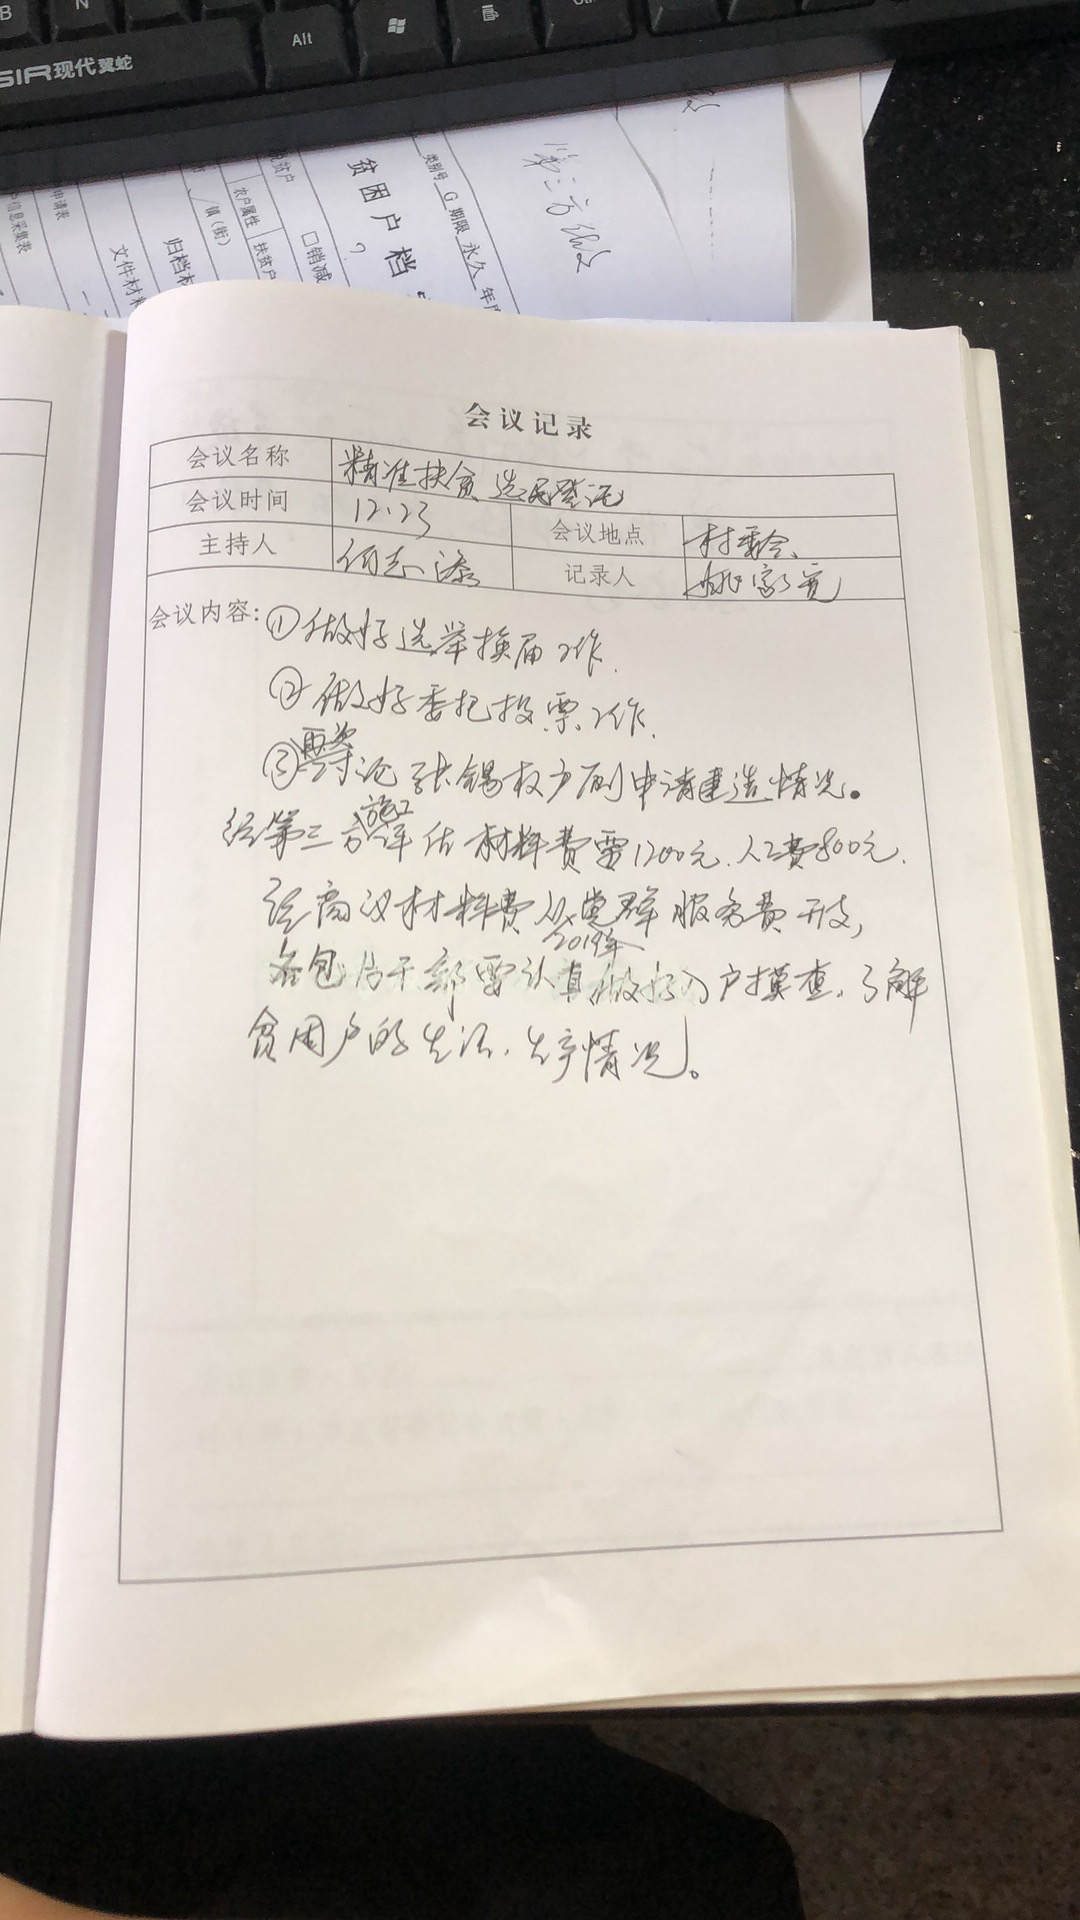 B N
SIR现代翼蛇 Alt Ctrl
第三方
类别号 G 期限 永久 年度
贫困户档
?
□销减
农户属性 扶贫户
镇(街)
归档材
文件材料
申请表
户信息采集表
会议记录
会议名称 精准扶贫 选民登记
会议时间 12.23 会议地点 村委会
主持人 何志添 记录人 姚家亮
会议内容: ①做好选举换届工作.
②做好委托投票工作.
③再次讨论张锡权户厕申请建造情况。
经第三方施工评估材料费需1200元.人工费800元.
经商议材料费从2019年党群服务费开支,
各包片干部要认真做好入户摸查.了解
贫困户的生活.生产情况。